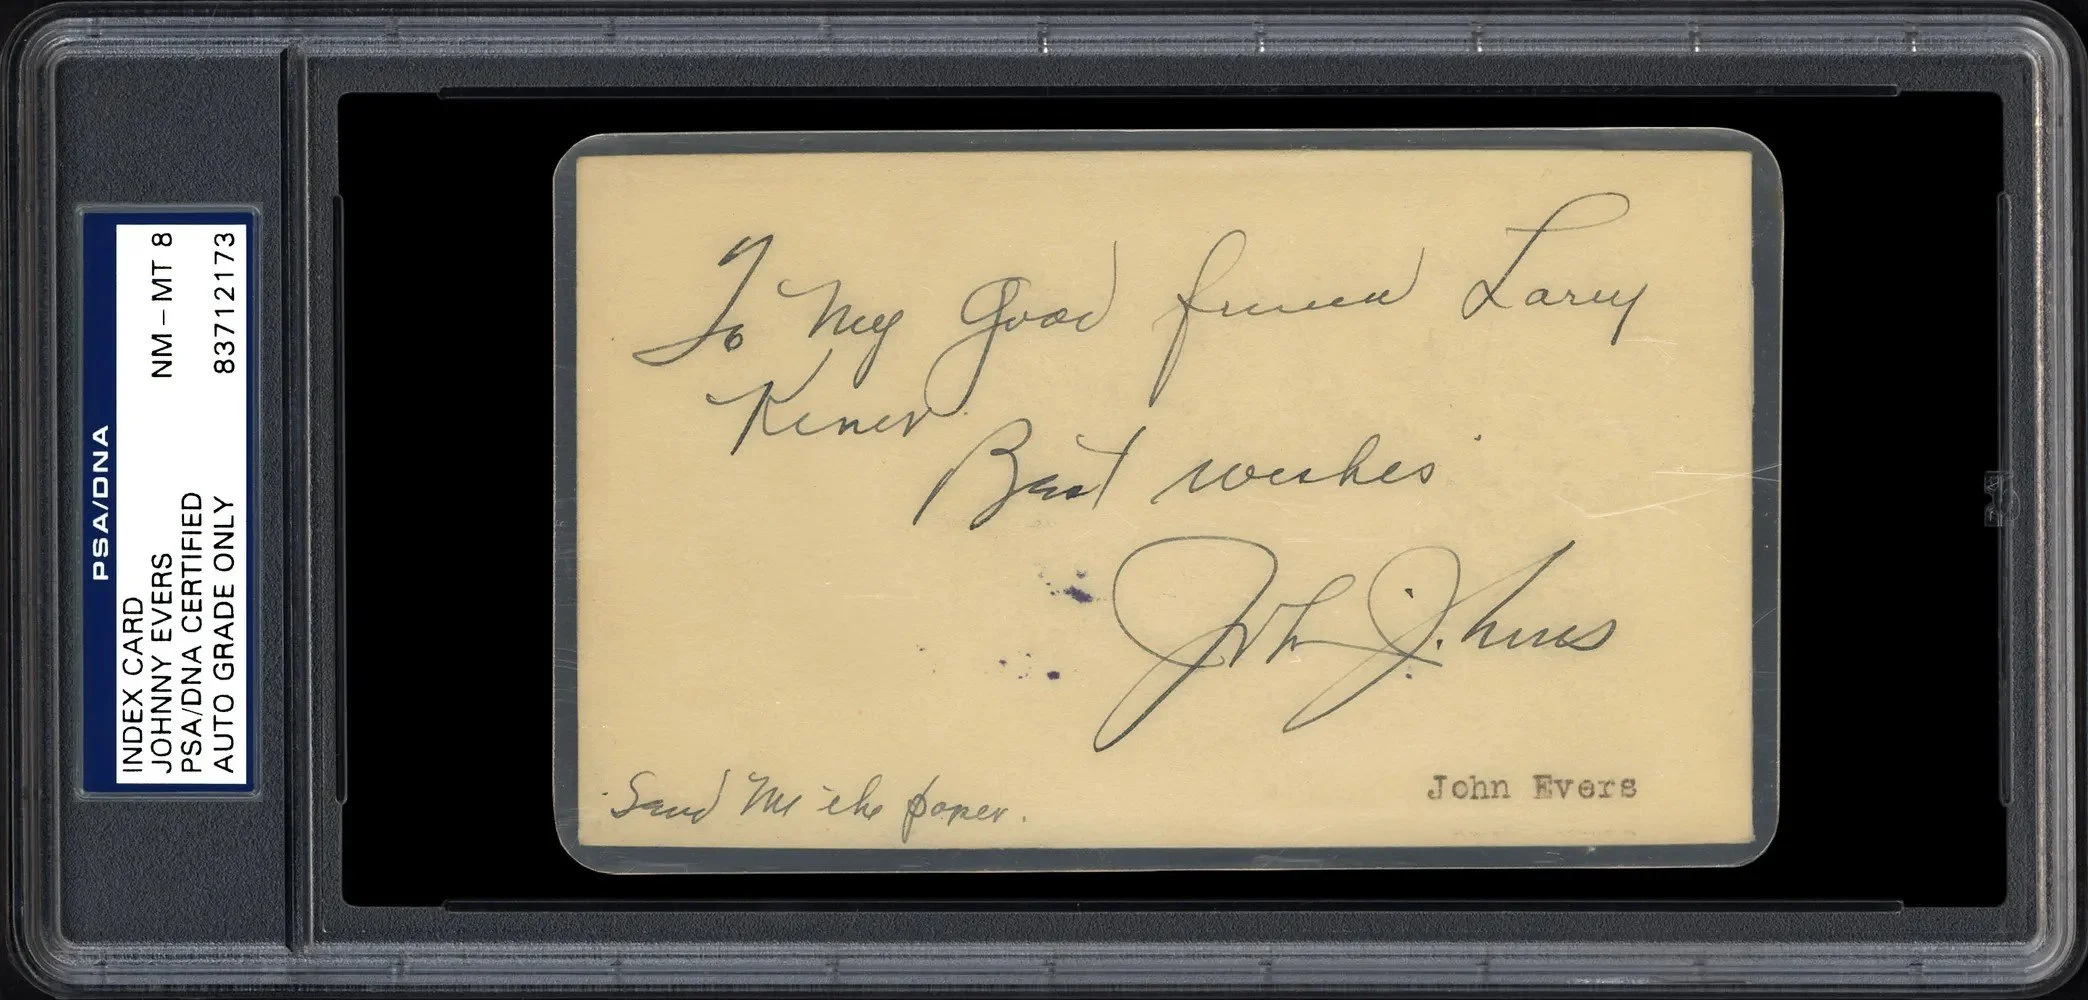 PSA/DNA
INDEX CARD
JOHNNY EVERS NM-MT 8
PSA/DNA CERTIFIED
AUTO GRADE ONLY 83712173
To My Good friend Larry
Kiner
Best wishes
John J. Evers
Send Me the paper.
John Evers